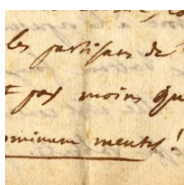 les partisans de
t pas moins qu
ominum mentes!